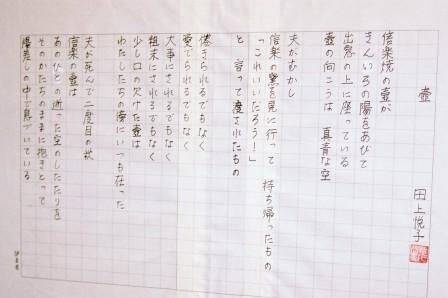 壺
田上悦子
信楽焼の壺が
きんいろの陽をあびて
出窓の上に座っている
壺の向こうは 真青な空
夫がむかし
信楽の窯を見に行って 持ち帰ったもの
「これいいだろう!」
と 言って渡されたもの
倦きられるでもなく
愛でられるでもなく
大事にされるでもなく
粗末にされるでもなく
少し口の欠けた壺は
わたしたちの傍にいつも在った
夫が死んで二度目の秋
信楽の壺は
あのひとの逝った空のしたたりを
そのかたちのままに抱きとって
陽差しの中で息づいている